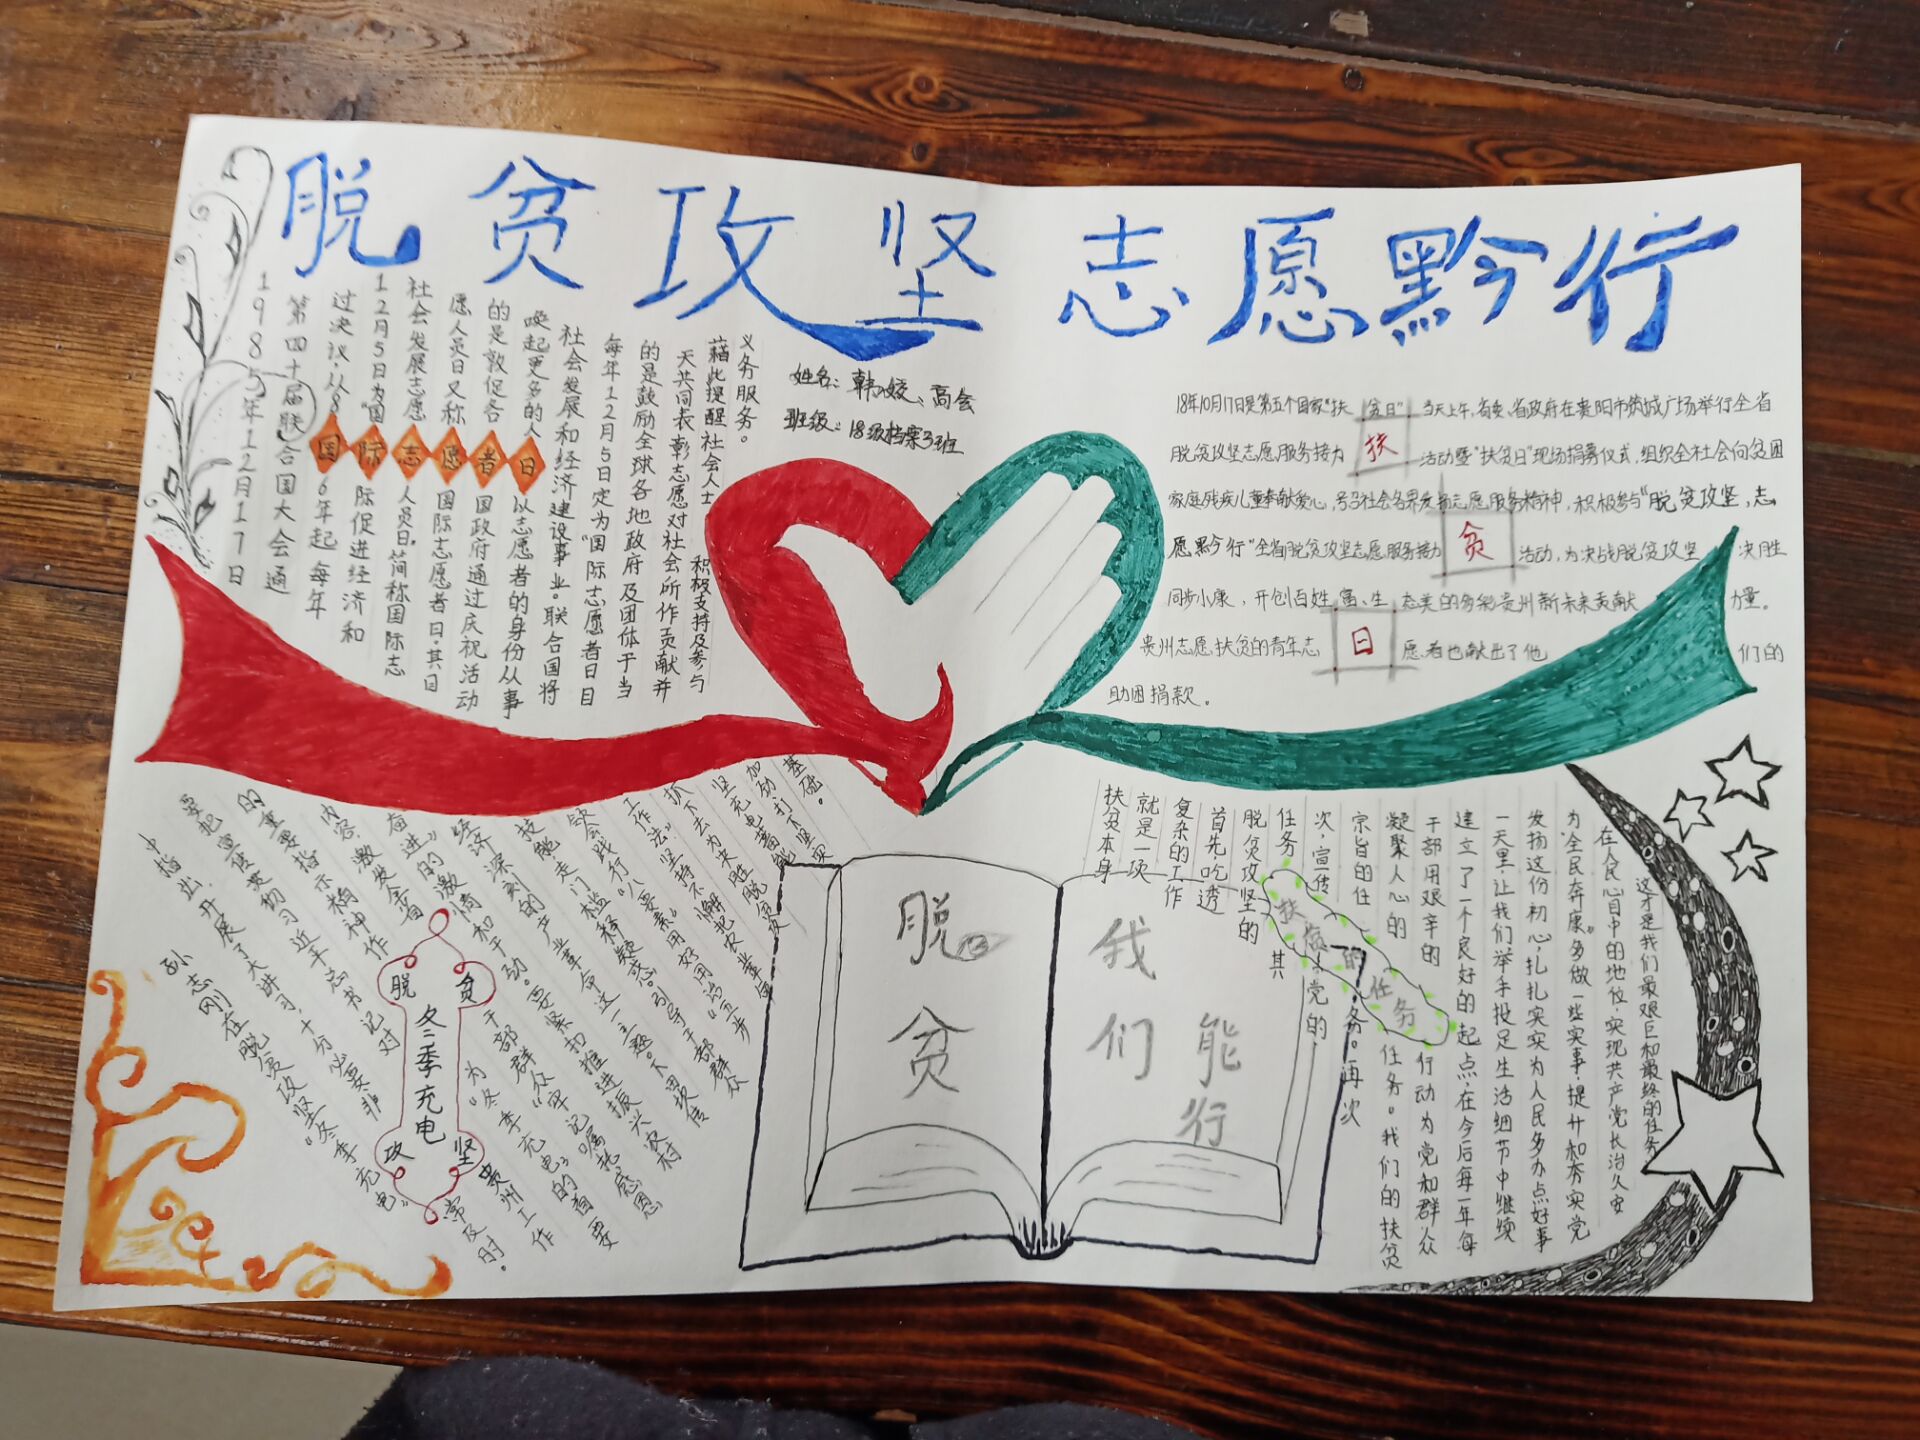 脱贫攻坚志愿黔行
姓名：韩姣、高会
班级：18级档案3班
1985年12月17日
第四十届联合国大会通
过决议，从86年起每年
12月5日为“国际促进经济和
社会发展志愿人员日”，简称国际志
愿人员日又称国际志愿者日。其目
的是敦促各国政府通过庆祝活动
唤起更多的人以志愿者的身份从事
社会发展和经济建设事业。联合国将
每年12月5日定为“国际志愿者日目
的是鼓励全球各地政府及团体于当
天共同表彰志愿对社会所作贡献并
藉此提醒社会人士 积极支持及参与
义务服务。
国际志愿者日
18年10月17日是第五个国家“扶贫日”当天上午，省委、省政府在贵阳市筑城广场举行全省
脱贫攻坚志愿服务接力 活动暨“扶贫日”现场捐募仪式，组织全社会向贫困
家庭残疾儿童奉献爱心，号召社会各界发扬志愿服务精神，积极参与“脱贫攻坚，志
愿黔行”全省脱贫攻坚志愿服务接力 活动，为决战脱贫攻坚 决胜
同步小康、开创百姓富、生态美的多彩贵州新未来贡献 力量。
贵州志愿扶贫的青年志 愿者也献出了他 们的
助困捐款。
扶
贫
日
孙志刚在脱贫攻坚“冬季充电”
中指出，开展了大讲习，十分必要，非常及时。
要把宣传贯彻习近平总书记对贵州工作
的重要指示精神作为“冬季充电”的首要
内容，激发全省干部群众“牢记嘱托感恩
奋进”的激情和干劲。要紧扣推进振兴农村
经济深刻的产业革命这一主题。
脱贫攻坚
冬季充电
脱贫
我们能行
扶贫本身
就是一项
复杂的工作
首先，吃透
脱贫攻坚的其
任务
次，宣传党的
宗旨的任务。再次
凝聚人心的任务。我们的扶贫
干部用艰辛的行动为党和群众
建立了一个良好的起点，在今后每一年每
一天里，让我们举手投足生活细节中继续
发扬这份初心，扎扎实实为人民多办点好事
为全民奔康。多做一些实事，提升和夯实党
在人民心目中的地位，实现共产党长治久安
这才是我们最艰巨和最终的任务
扶贫的任务